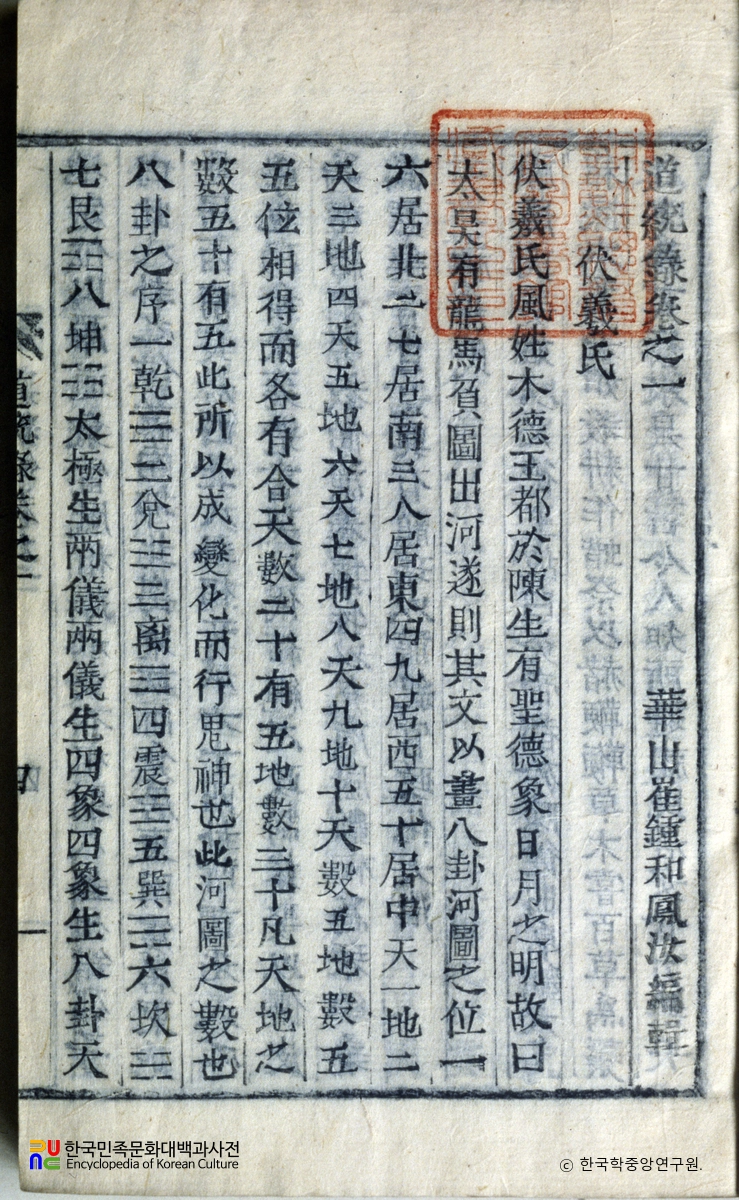 道統錄卷之一
華山崔鍾和鳳汝編輯
伏羲氏
伏羲氏風姓木德王都於陳生有聖德象日月之明故曰
太昊有龍馬負圖出河遂則其文以畫八卦河圖之位一
六居北二七居南三八居東四九居西五十居中天一地二
天三地四天五地六天七地八天九地十天數五地數五
五位相得而各有合天數二十有五地數三十凡天地之
數五十有五此所以成變化而行鬼神也此河圖之數也
八卦之序一乾☰二兌☱三离☲四震☳五巽☴六坎☵
七艮☶八坤☷太極生兩儀兩儀生四象四象生八卦天
道統錄卷之一
한국민족문화대백과사전
Encyclopedia of Korean Culture
© 한국학중앙연구원.